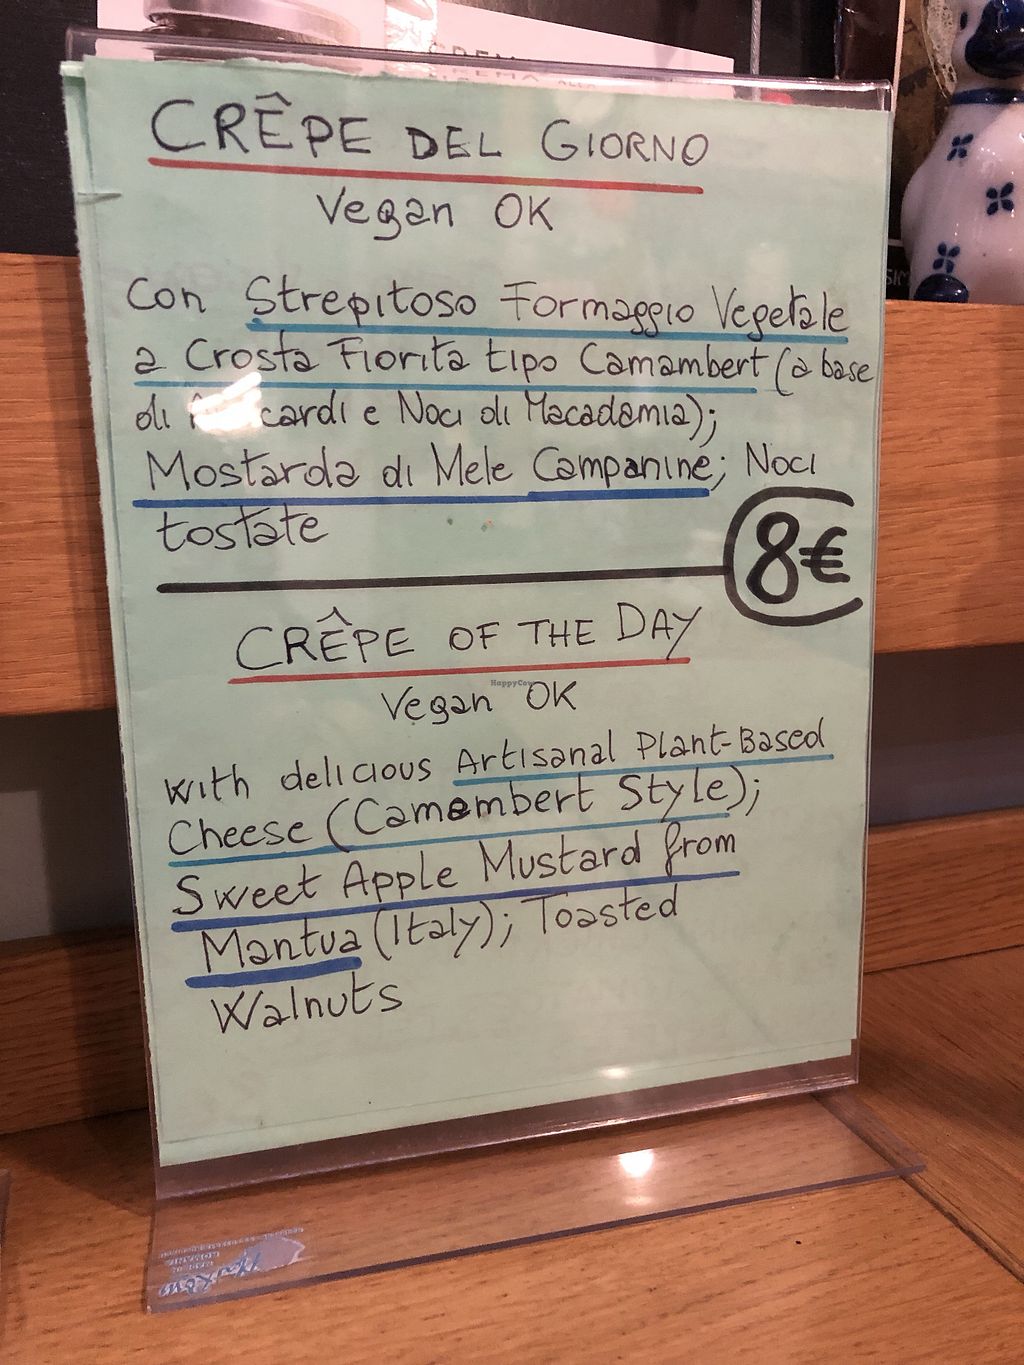 CREMA
CRÊPE DEL GIORNO
Vegan OK
con Strepitoso Formaggio Vegetale
a Crosta Fiorita tipo Camambert (a base
di e Noci di Macadamia);
Mostarda di Mele Campanine; Noci
tostate
8€
CRÊPE OF THE DAY
HappyCow
Vegan OK
with delicious Artisanal Plant-Based
Cheese (Camembert Style);
Sweet Apple Mustard from
Mantua (Italy); Toasted
Walnuts